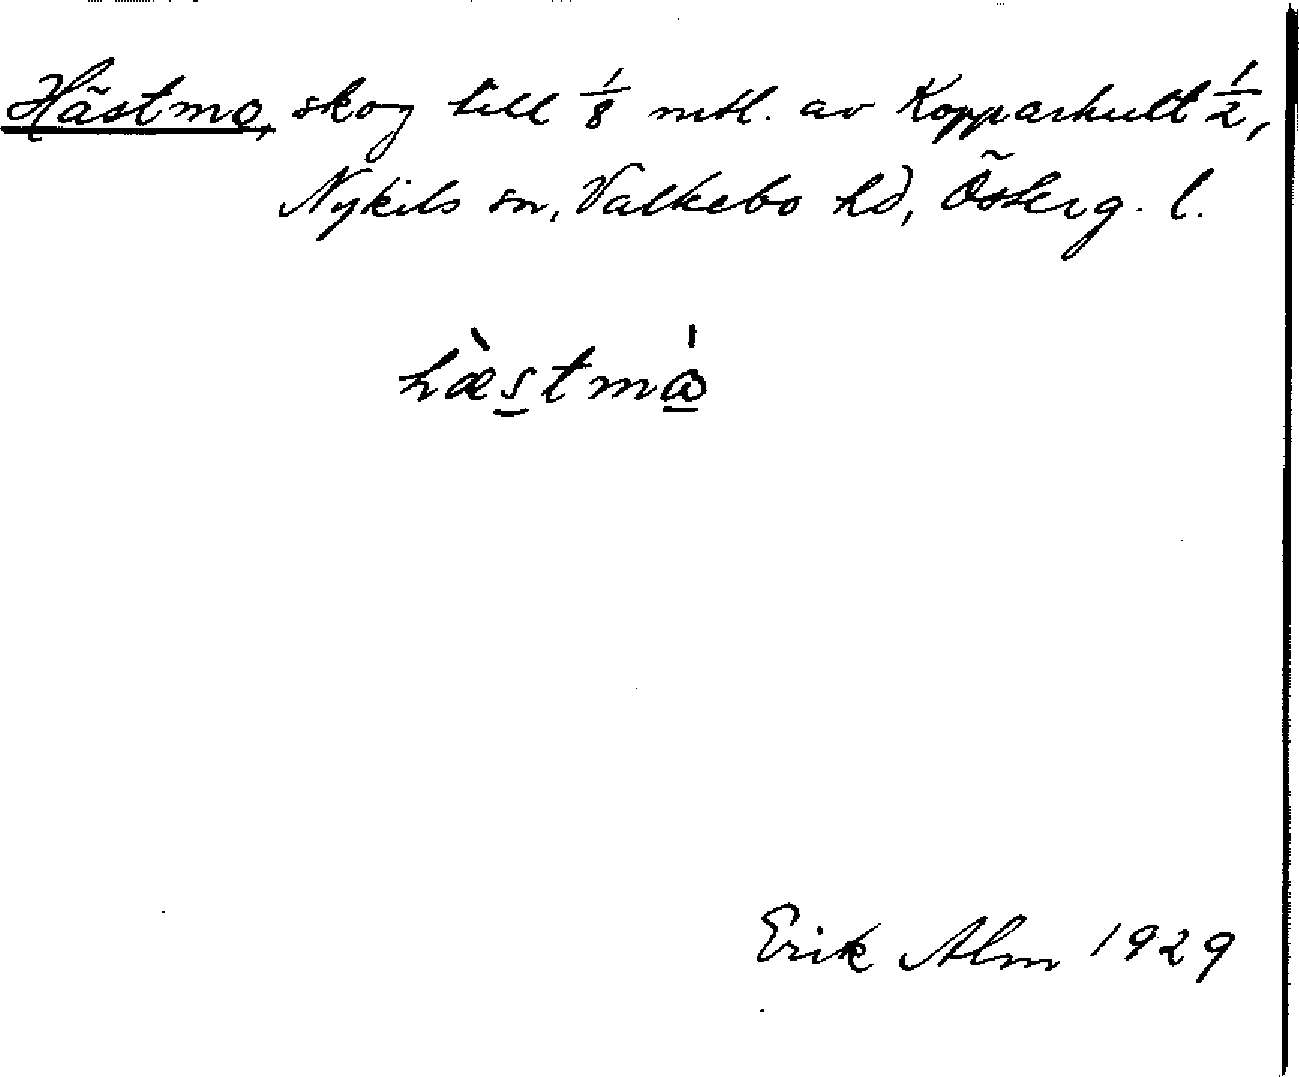 Hästmo, skog till 1/8 mtl. av Kopparhult 1/2,
Nykils sn, Valkebo hd, Österg. l.
hæ̀stmɷ̀
Erik Alm 1929